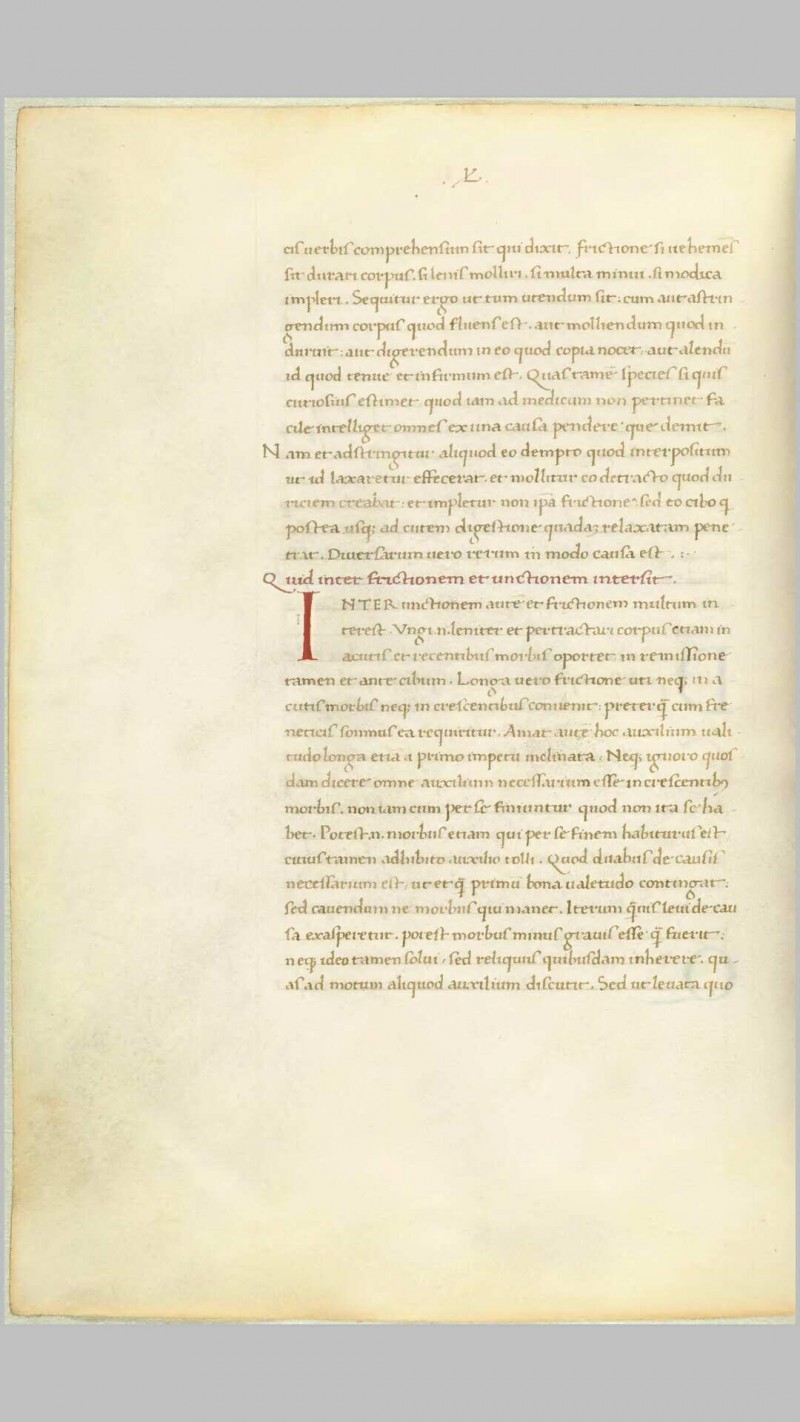 .L.
cis uerbis comprehensum sit qui dixit. frictione si uehemēs
sit durari corpus. si lenis molliri. si multa minui. si modica
impleri. Sequitur ergo ut tum utendum sit: cum aut astrin
gendum corpus quod fluens est. aut molliendum quod in
duruit: aut digerendum in eo quod copia nocet. aut alendū
id quod tenue et infirmum est. Quas tamē species si quis
curiosius estimet quod iam ad medicum non pertinet fa
cile intelliget omnes ex una causa pendere que demit.
Nam et adstringitur aliquod eo dempto quod interpositum
ut id laxaretur effecerat. et mollitur eo detracto quod du
riciem creabat: et impletur non ipā frictione sed eo cibo q
postea usq; ad cutem digestione quadā relaxatam pene
trat. Diuersarum uero rerum in modo causa est.
Quid inter frictionem et unctionem intersit.
INTER unctionem autē et frictionem multum in
terest. Vngi .n. leniter et pertractari corpus etiam in
acutis et recentibus morbis oportet in remissione
tamen et ante cibum. Longa uero frictione uti neq; in a
cutis morbis neq; in crescentibus conuenit: preterq̄ cum fre
neticis somnus ea requiritur. Amat autē hoc auxilium uali
tudo longa etiā a primo impetu inclinata. Neq; ignoro quos
dam dicere omne auxilium necessarium esse in crescentib;
morbis. non iam cum per se finiuntur quod non ita se ha
bet. Potest .n. morbus etiam qui per se finem habiturus est
citius tamen adhibito auxilio tolli. Quod duabus de causis
necessarium est, ut et q̄ primū bona ualetudo contingat:
sed cauendum ne morbus qui manet. Iterum q̄uis leui de cau
sa exasperetur. potest morbus minus grauis esse q̄ fuerit:
neq; ideo tamen solui, sed reliquiis quibusdam inherere. qu
as ad motum aliquod auxilium discutit. Sed ut leuata quo